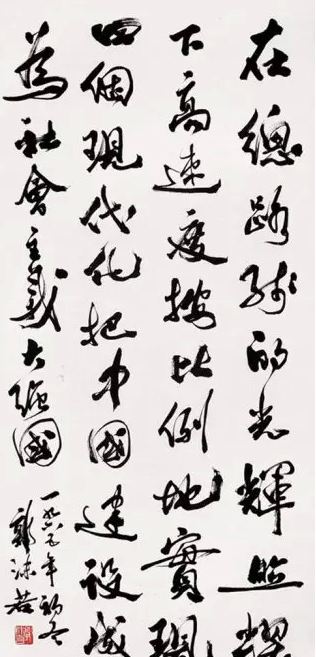 在總路线的光輝照耀
下高速度按比例地實現
四個現代化把中國建设成
為社會主義大強國
一九六五年初冬
郭沫若